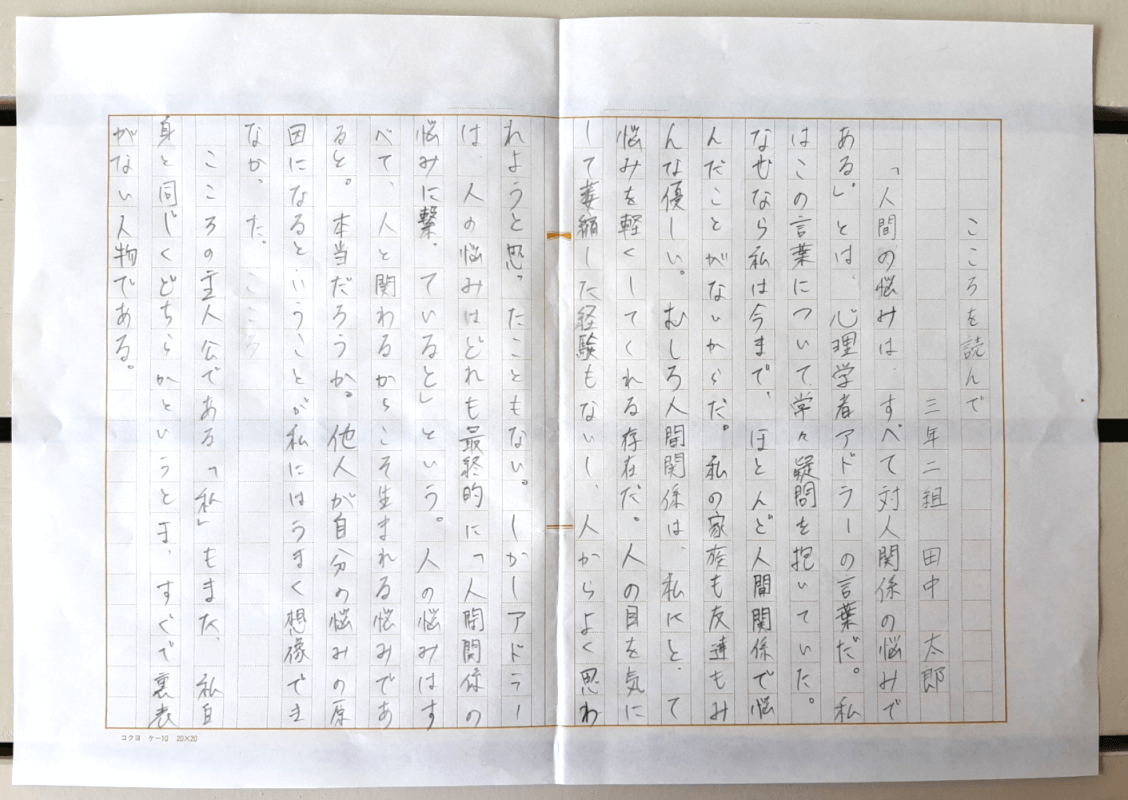 こころを読んで
三年二組　田中　太郎
「人間の悩みは、すべて対人関係の悩みで
ある」とは、心理学者アドラーの言葉だ。私
はこの言葉について学々疑問を抱いていた。
なぜなら私は今まで、ほとんど人間関係で悩
んだことがないからだ。私の家族も友達もみ
んな優しい。むしろ人間関係は、私にとって
悩みを軽くしてくれる存在だ。人の目を気に
して萎縮した経験もないし、人からよく思わ
れようと思ったこともない。しかしアドラー
は、人の悩みはどれも最終的に「人間関係の
悩みに繋っていると」という。人の悩みはす
べて、人と関わるからこそ生まれる悩みであ
ると。本当だろうか。他人が自分の悩みの原
因になるということが私にはうまく想像でき
なかった。こころ
こころの主人公である「私」もまた、私自
身と同じくどちらかというとま、すぐで裏表
がない人物である。
コクヨ　ケー10　20×20